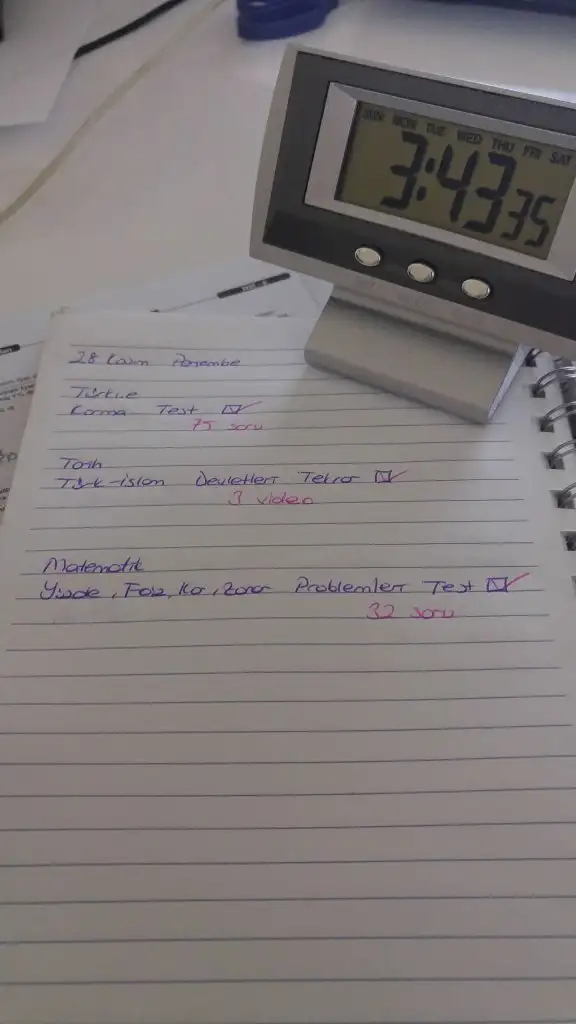 SUN MON TUE WED THU FRI SAT
3:43 35
28 Kasım Perşembe
Türkçe
Karma Test
75 soru
Tarih
Türk-islam Devletleri Tekrar
3 video
Matematik
Yüzde, Faiz, Kar, Zarar Problemleri Test
32 soru